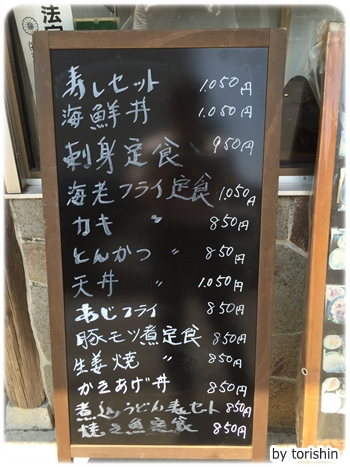 法
寿しセット 1.050円
海鮮丼 1.050円
刺身定食 950円
海老フライ定食 1,050円
カキ 〃 850円
とんかつ 〃 850円
天丼 1,050円
あじフライ 850円
豚モツ煮定食 850円
生姜焼 〃 850円
かきあげ丼 850円
煮込うどん寿セット 850円
焼き魚定食 850円
by torishin